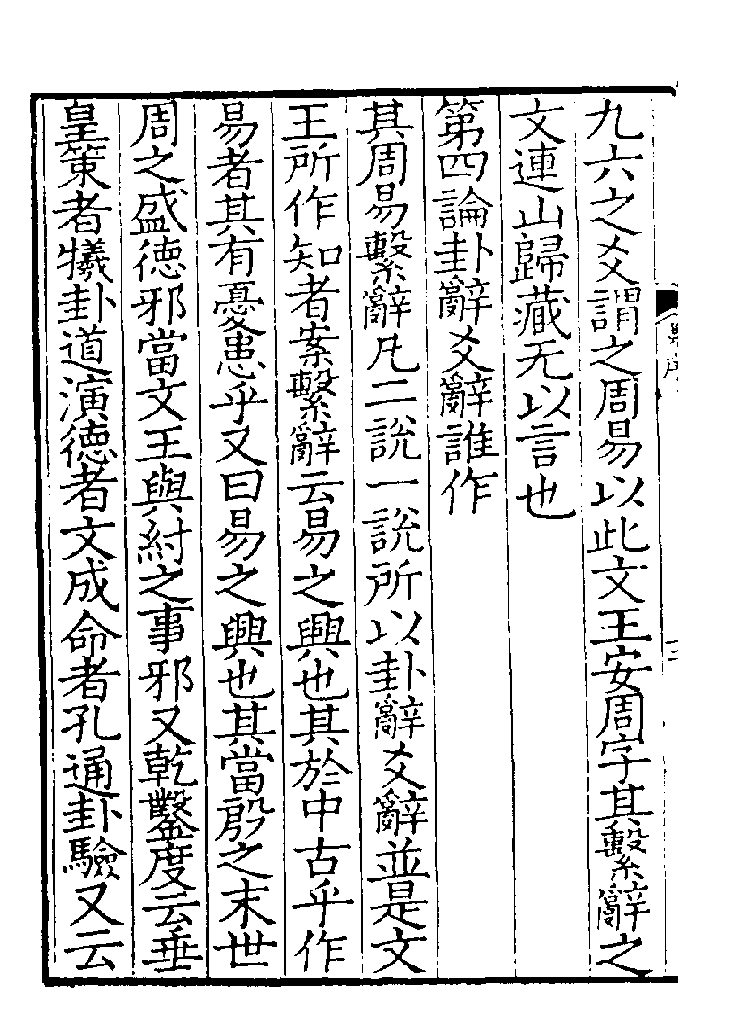 九六之爻謂之周易以此文王安周字其繫辭之
文連山歸藏无以言也
第四論卦辭爻辭誰作
其周易繫辭凡二說一說所以卦辭爻辭並是文
王所作知者案繫辭云易之興也其於中古乎作
易者其有憂患乎又曰易之興也其當殷之末世
周之盛德邪當文王與紂之事邪又乾鑿度云垂
皇策者犧卦道演德者文成命者孔通卦驗又云